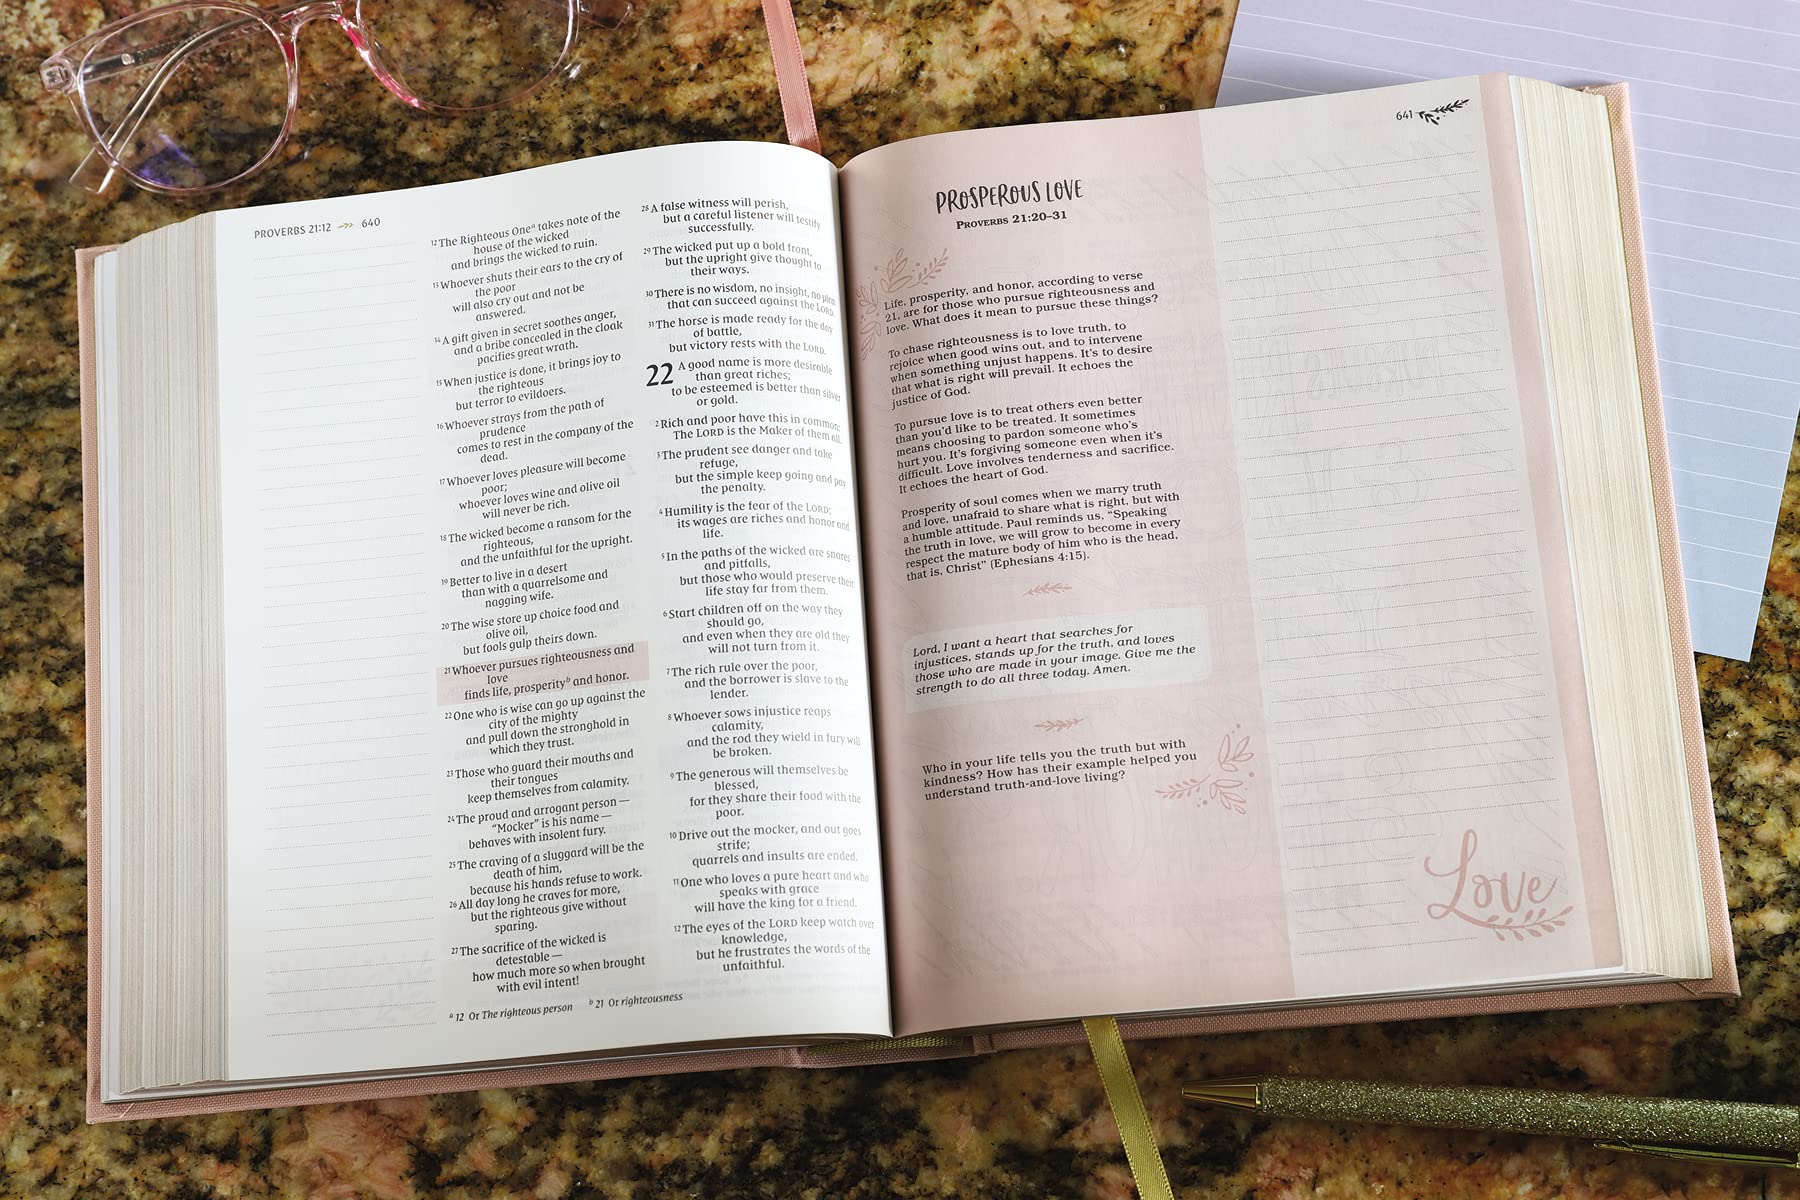 PROVERBS 21:12 640
12 The Righteous One a takes note of the
house of the wicked
and brings the wicked to ruin.
13 Whoever shuts their ears to the cry of
the poor
will also cry out and not be
answered.
14 A gift given in secret soothes anger,
and a bribe concealed in the cloak
pacifies great wrath.
15 When justice is done, it brings joy to
the righteous
but terror to evildoers.
16 Whoever strays from the path of
prudence
comes to rest in the company of the
dead.
17 Whoever loves pleasure will become
poor;
whoever loves wine and olive oil
will never be rich.
18 The wicked become a ransom for the
righteous,
and the unfaithful for the upright.
19 Better to live in a desert
than with a quarrelsome and
nagging wife.
20 The wise store up choice food and
olive oil,
but fools gulp theirs down.
21 Whoever pursues righteousness and
love
finds life, prosperity b and honor.
22 One who is wise can go up against the
city of the mighty
and pull down the stronghold in
which they trust.
23 Those who guard their mouths and
their tongues
keep themselves from calamity.
24 The proud and arrogant person —
"Mocker" is his name —
behaves with insolent fury.
25 The craving of a sluggard will be the
death of him,
because his hands refuse to work.
26 All day long he craves for more,
but the righteous give without
sparing.
27 The sacrifice of the wicked is
detestable —
how much more so when brought
with evil intent!
28 A false witness will perish,
but a careful listener will testify
successfully.
29 The wicked put up a bold front,
but the upright give thought to
their ways.
30 There is no wisdom, no insight, no plan
that can succeed against the LORD.
31 The horse is made ready for the day
of battle,
but victory rests with the LORD.
22 A good name is more desirable
than great riches;
to be esteemed is better than silver
or gold.
2 Rich and poor have this in common:
The LORD is the Maker of them all.
3 The prudent see danger and take
refuge,
but the simple keep going and pay
the penalty.
4 Humility is the fear of the LORD;
its wages are riches and honor and
life.
5 In the paths of the wicked are snares
and pitfalls,
but those who would preserve their
life stay far from them.
6 Start children off on the way they
should go,
and even when they are old they
will not turn from it.
7 The rich rule over the poor,
and the borrower is slave to the
lender.
8 Whoever sows injustice reaps
calamity,
and the rod they wield in fury will
be broken.
9 The generous will themselves be
blessed,
for they share their food with the
poor.
10 Drive out the mocker, and out goes
strife;
quarrels and insults are ended.
11 One who loves a pure heart and who
speaks with grace
will have the king for a friend.
12 The eyes of the LORD keep watch over
knowledge,
but he frustrates the words of the
unfaithful.
a 12 Or The righteous person b 21 Or righteousness
641
PROSPEROUS LOVE
PROVERBS 21:20–31
Life, prosperity, and honor, according to verse
21, are for those who pursue righteousness and
love. What does it mean to pursue these things?
To chase righteousness is to love truth, to
rejoice when good wins out, and to intervene
when something unjust happens. It's to desire
that what is right will prevail. It echoes the
justice of God.
To pursue love is to treat others even better
than you'd like to be treated. It sometimes
means choosing to pardon someone who's
hurt you. It's forgiving someone even when it's
difficult. Love involves tenderness and sacrifice.
It echoes the heart of God.
Prosperity of soul comes when we marry truth
and love, unafraid to share what is right, but with
a humble attitude. Paul reminds us, "Speaking
the truth in love, we will grow to become in every
respect the mature body of him who is the head,
that is, Christ" (Ephesians 4:15).
Lord, I want a heart that searches for
injustices, stands up for the truth, and loves
those who are made in your image. Give me the
strength to do all three today. Amen.
Who in your life tells you the truth but with
kindness? How has their example helped you
understand truth-and-love living?
Love